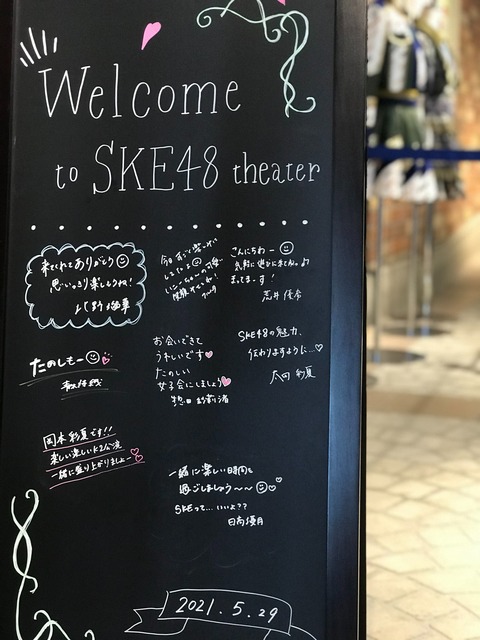 Welcome
to SKE48 theater
来てくれてありがとう
思いっきり楽しもうね!
こんにちわー
気軽に遊びに来てね。
まってまーす!
荒井優希
たのしもー
お会いできて
うれしいです
たのしい
女子会にしましょう
SKE48の魅力、
伝わりますように…
太田 彩夏
岡本彩夏です!!
楽しい楽しいK2公演
一緒に盛り上がりましょー
一緒に楽しい時間を
過ごしましょう〜〜
SKEって…いいよ??
日高優月
2021.5.29